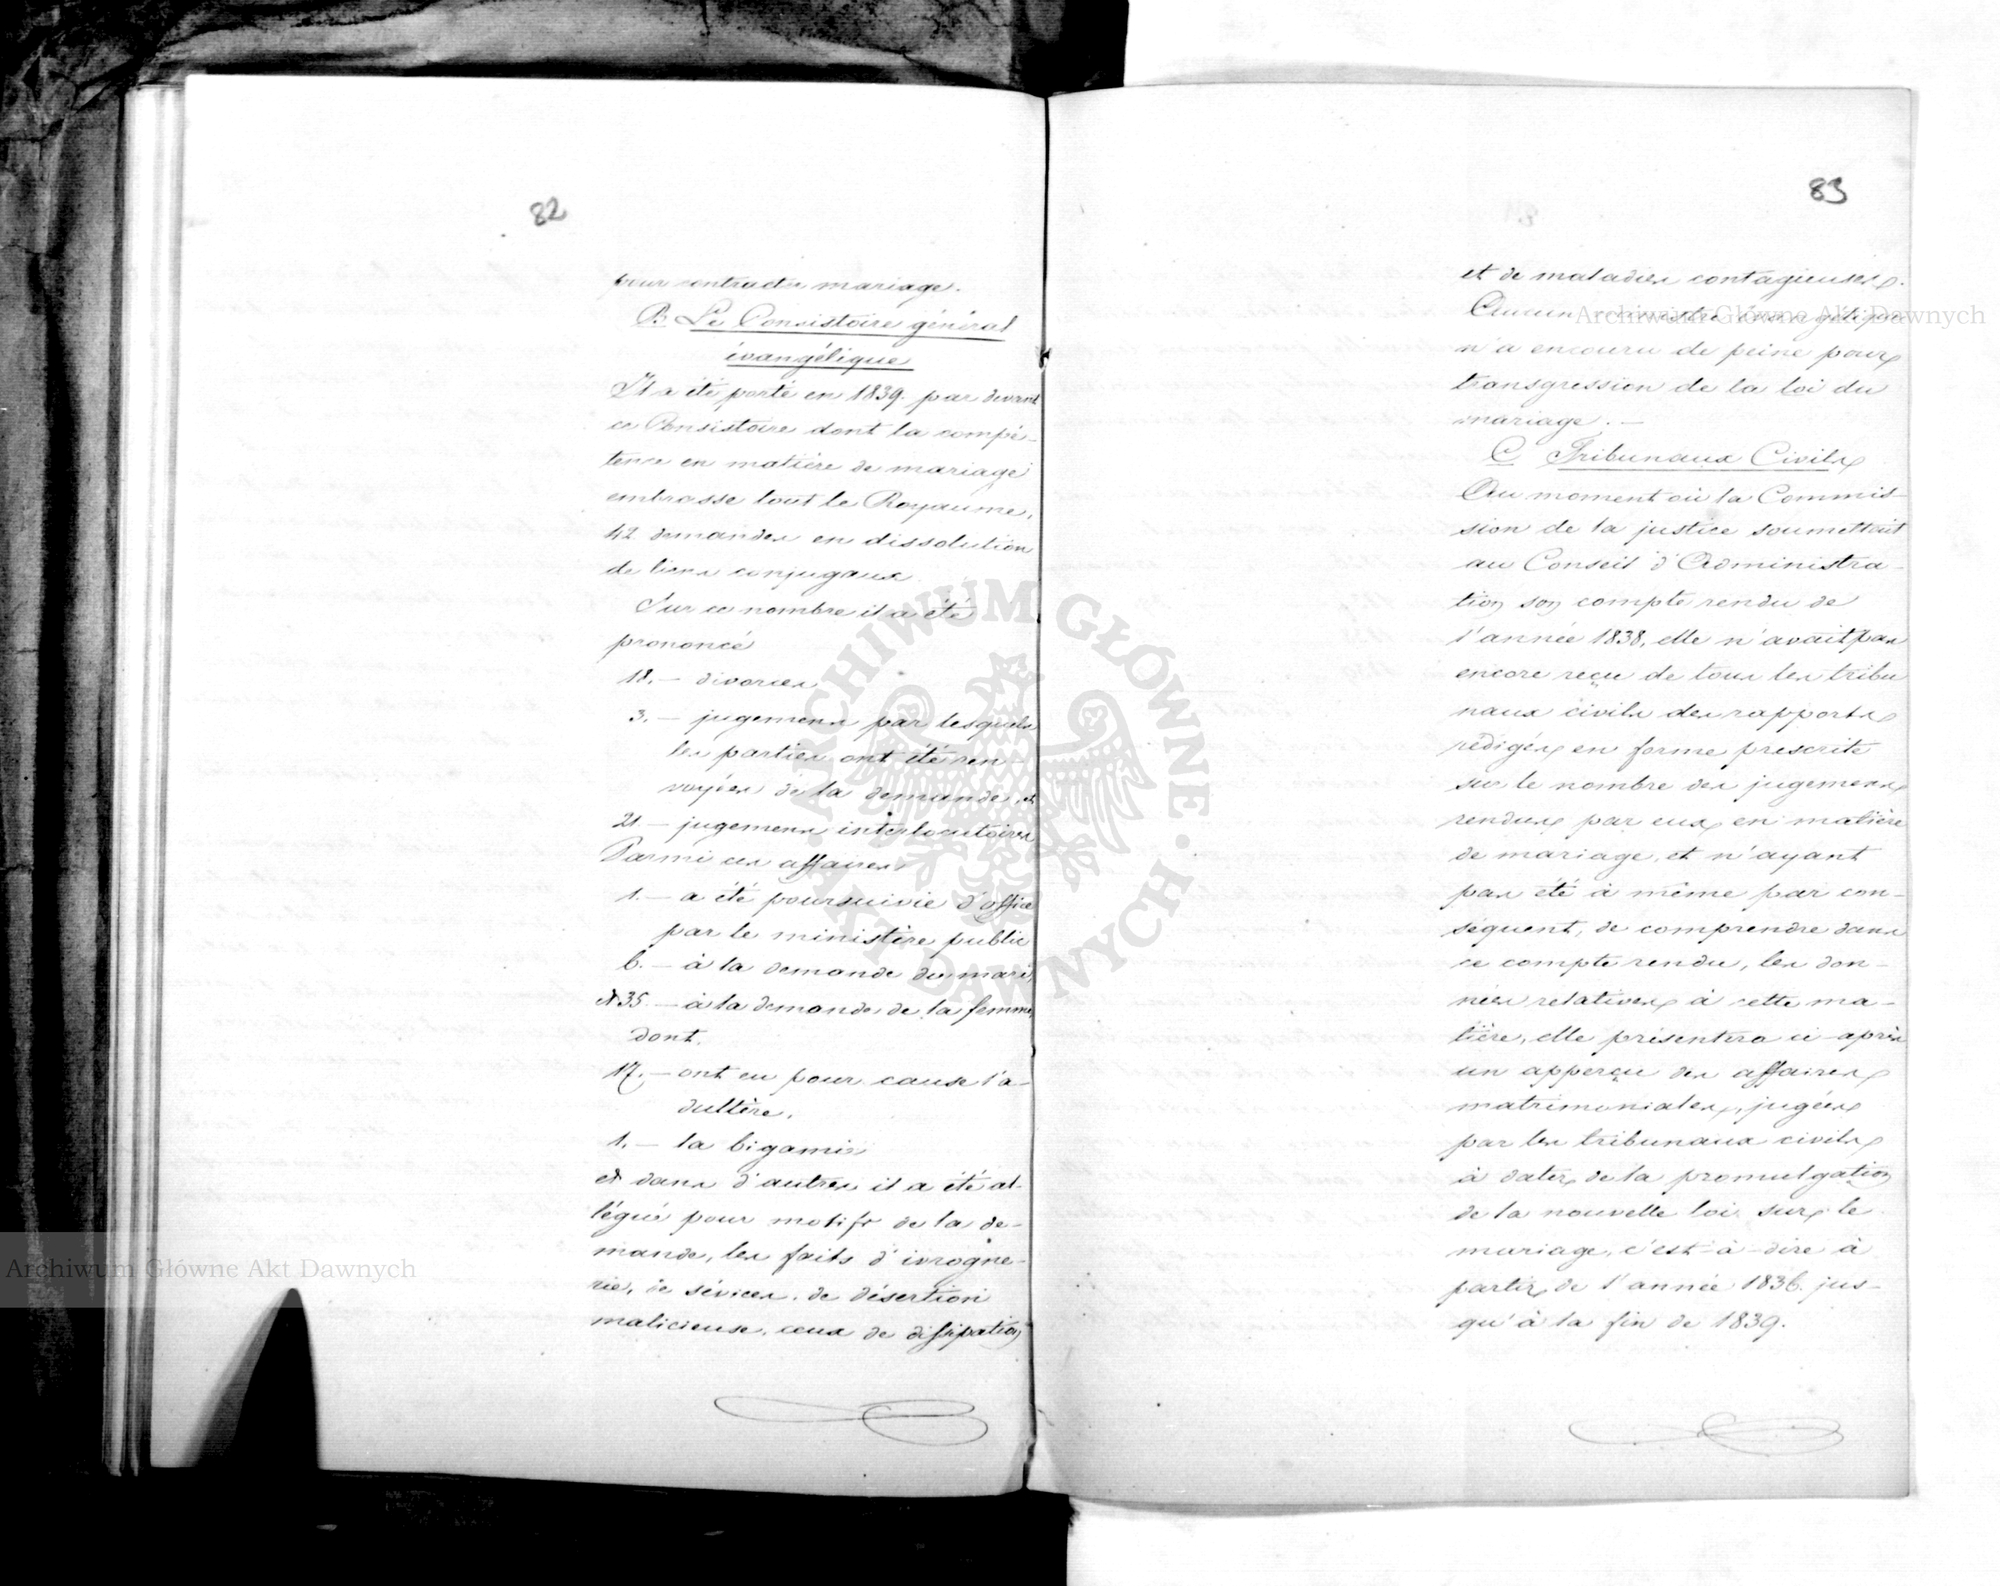 82
pour contracter mariage.
B. Le Consistoire général
évangélique
Il a été porté en 1839. par devant
ce Consistoire dont la compé-
tence en matière de mariage
embrasse tout le Royaume,
42 demandes en dissolution
de liens conjugaux
Sur ce nombre il a été
prononcé
18. — divorces
3. — jugemens par lesquels
les parties ont été ren-
voyées de la demande, et
21. — jugemens interlocutoires
Parmi ces affaires
1. — a été poursuivie d'office
par le ministère public
6. — à la demande du mari,
et 35. — à la demande de la femme,
dont,
17. — ont eu pour cause l'a-
dultère,
1. — la bigamie
et dans d'autres il a été al-
légué pour motifs de la de-
mande, les faits d'ivrogne-
rie, de sévices, de désertion
malicieuse, ceux de dissipation
83
et de maladies contagieuses.
Aucun ministre évangélique
n'a encouru de peine pour
transgression de la loi du
mariage. —
C Tribunaux Civils
Au moment où la Commis-
sion de la justice soumettait
au Conseil d'Administra-
tion son compte rendu de
l'année 1838, elle n'avait pas
encore reçu de tous les tribu
naux civils des rapports
rédigés en forme prescrite
sur le nombre des jugemens
rendus par eux en matière
de mariage, et n'ayant
pas été à même par con-
séquent, de comprendre dans
ce compte rendu, les don-
nées relatives à cette ma-
tière, elle présentera ci-après
un apperçu des affaires
matrimoniales, jugées
par les tribunaux civils
à dater de la promulgation
de la nouvelle loi sur le
mariage, c'est-à-dire à
partir de l'année 1836. jus-
qu'à la fin de 1839.
Archiwum Główne Akt Dawnych
Archiwum Główne Akt Dawnych
ARCHIWUM GŁÓWNE · AKT DAWNYCH ·